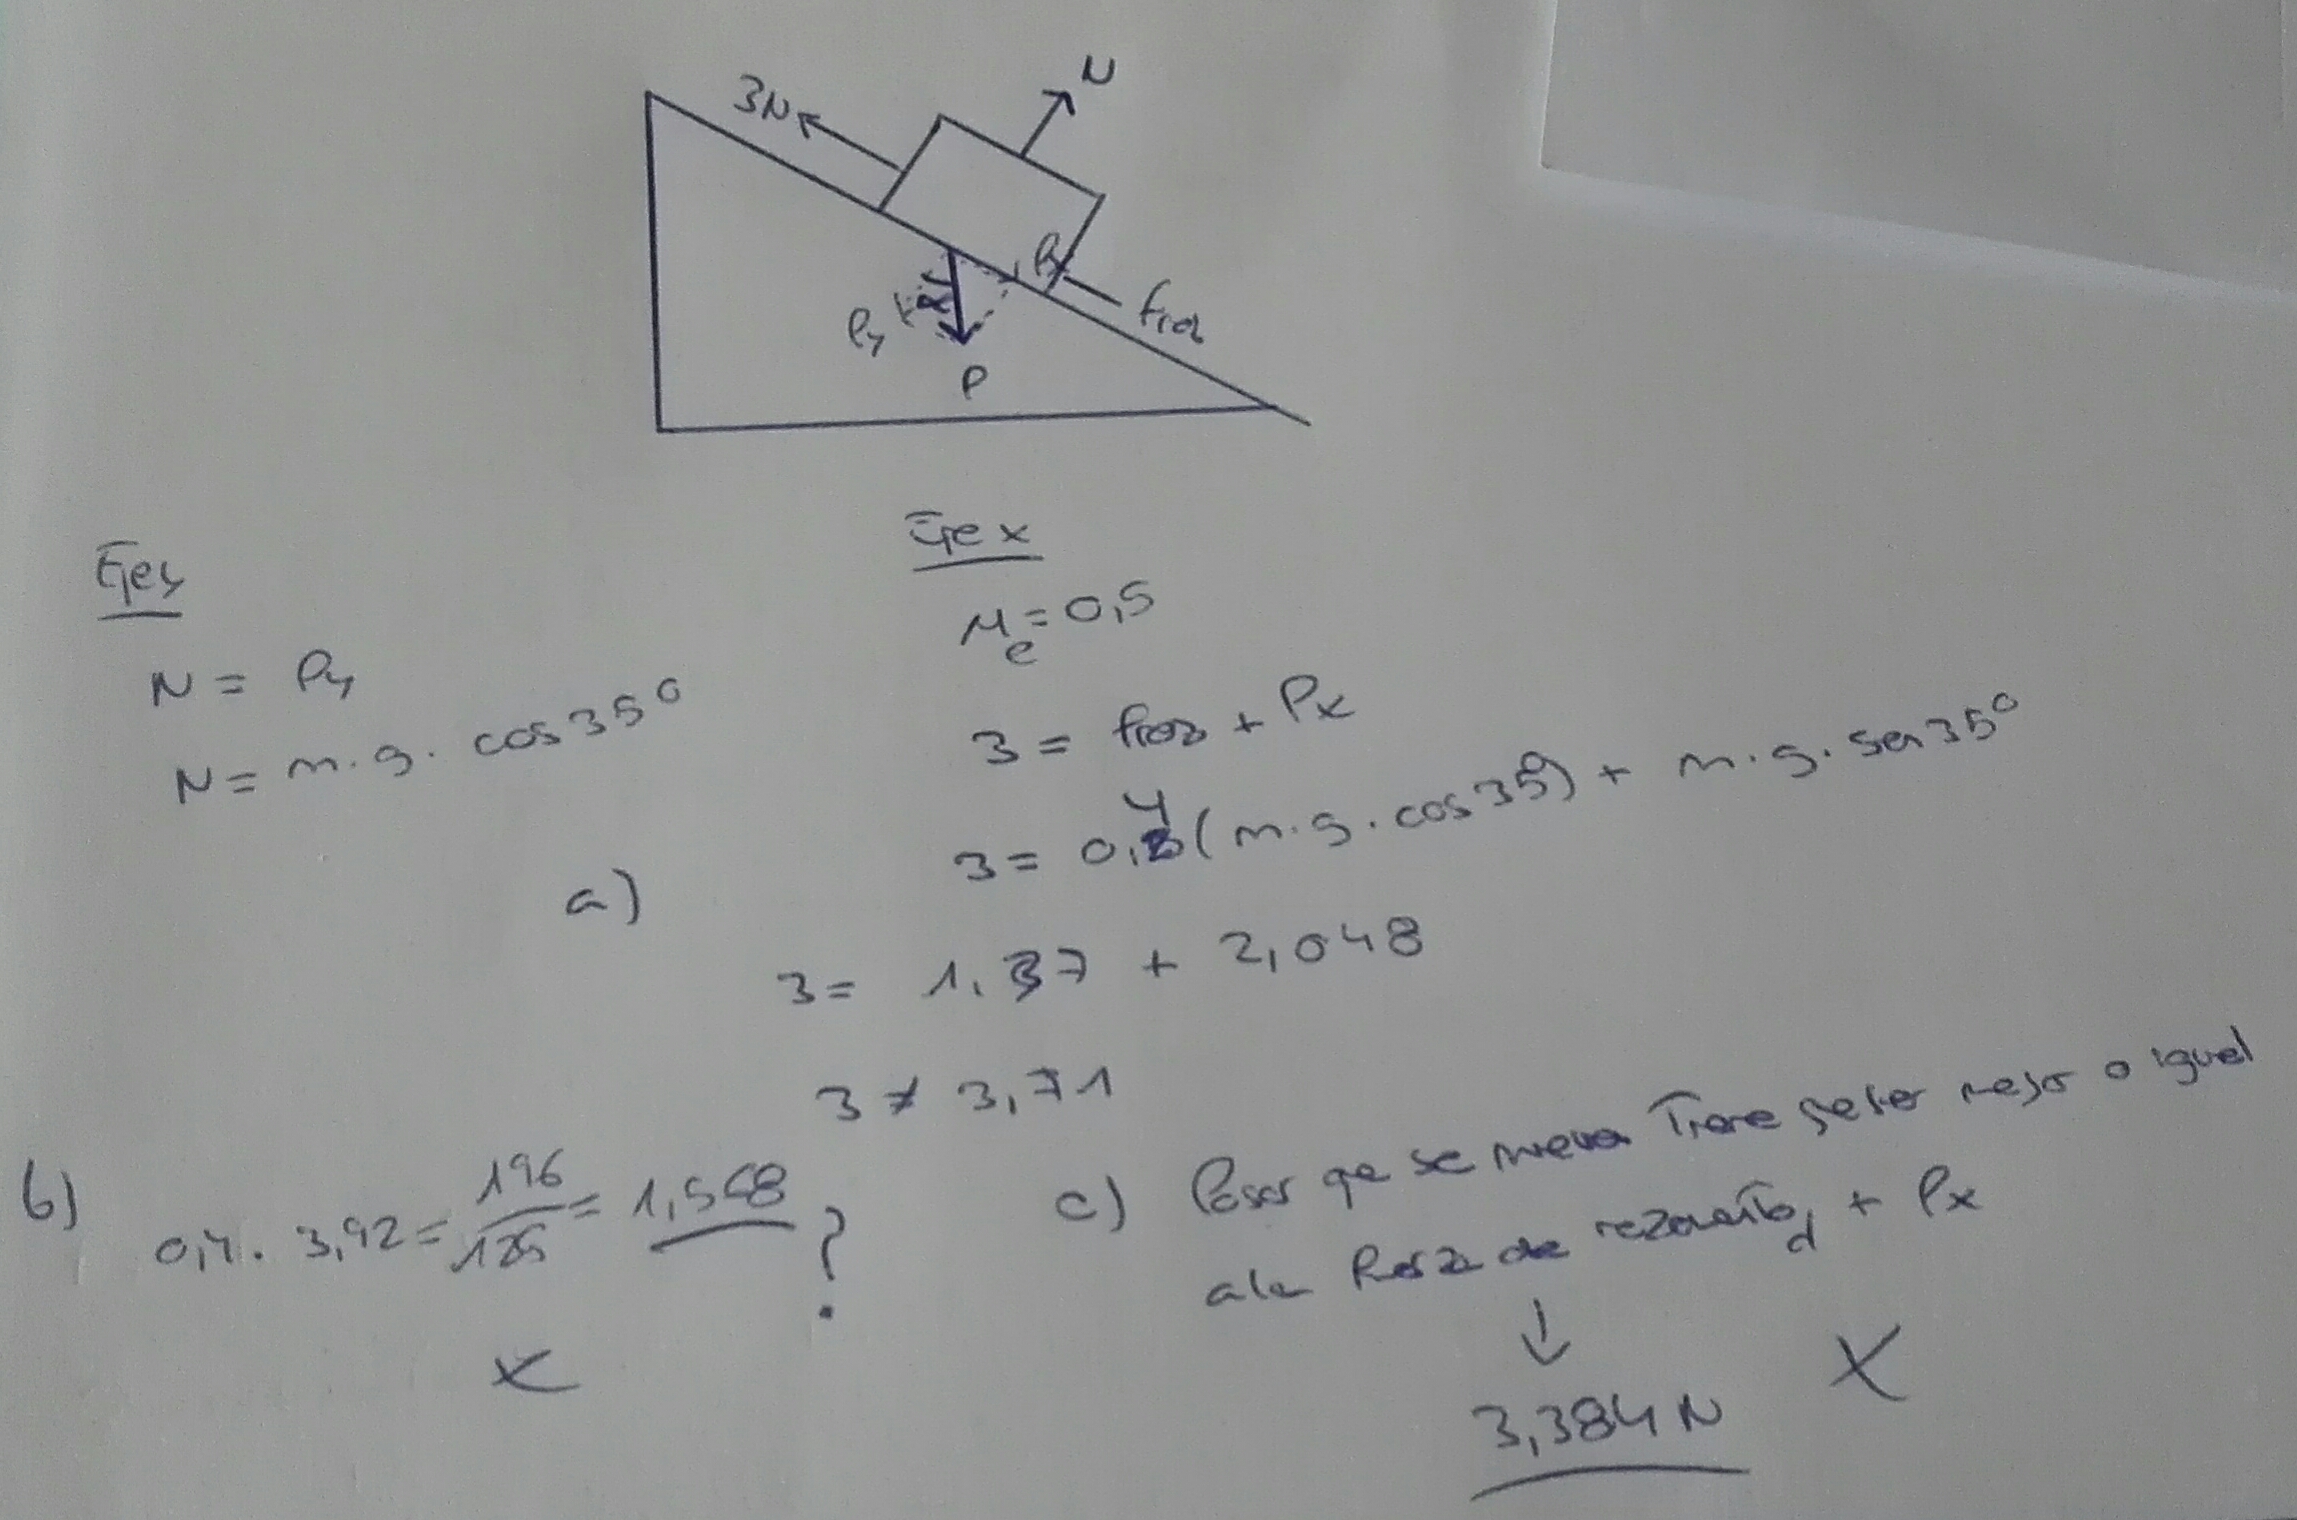 3N
N
Px
Froz
Py
α
P
Eje y
N = Py
N = m.g. cos 35°
Eje x
μe = 0,5
3 = froz + Px
3 = 0,4 (m.g. cos 35°) + m.g. sen 35°
a)
3 = 1,37 + 2,048
3 ≠ 3,71
b)
0,4 . 3,92 = 196/125 = 1,568 ?
x
c) Para que se mueva Tiene que ser mayor o igual
a la fuerza de rozamiento d + Px
↓
3,384 N
X